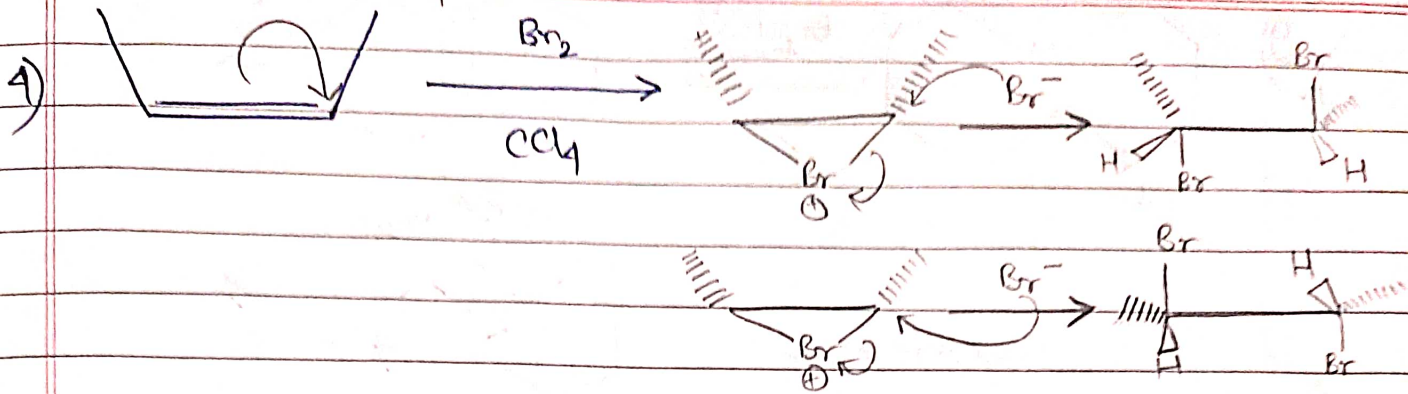 4)
Br2
CCl4
Br
⊕
Br⁻
H
Br
Br
H
Br
⊕
Br⁻
Br
H
H
Br